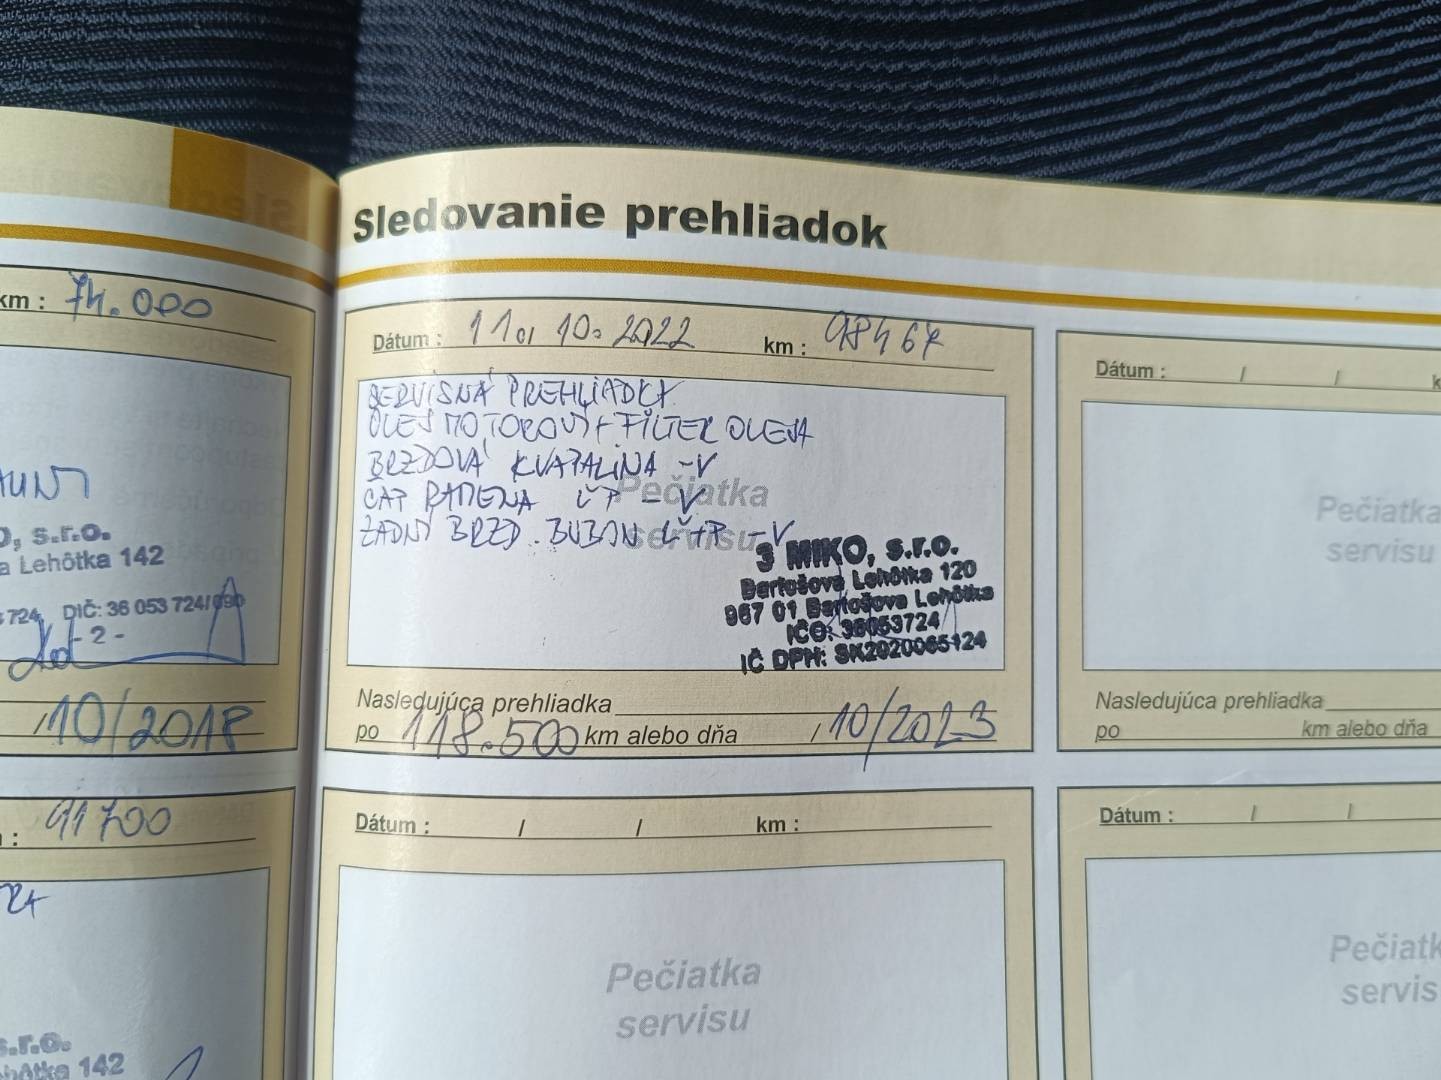 Sledovanie prehliadok
km : 74.000
s.r.o.
Lehôtka 142
724, DIČ: 36 053 724/690
- 2 -
/10/2018
: 91700
s.r.o.
142
Dátum : 11. 10. 2022 km : 98467
SERVISNÁ PREHLIADKA
OLEJ MOTOROVÝ + FILTER OLEJA
BRZDOVÁ KVAPALINA - V
ČAP RAMENA ĽP - V
ZADNÝ BRZD. BUBON Ľ+P - V
Pečiatka
servisu
3 MIKO, s.r.o.
Bartošova Lehôtka 120
967 01 Bartošova Lehôtka
IČO: 36053724
IČ DPH: SK2020065124
Nasledujúca prehliadka
po 118.500 km alebo dňa / 10/2023
Dátum : / / km :
Pečiatka
servisu
Dátum : / / k
Pečiatka
servisu
Nasledujúca prehliadka
po km alebo dňa
Dátum : / /
Pečiatk
servis